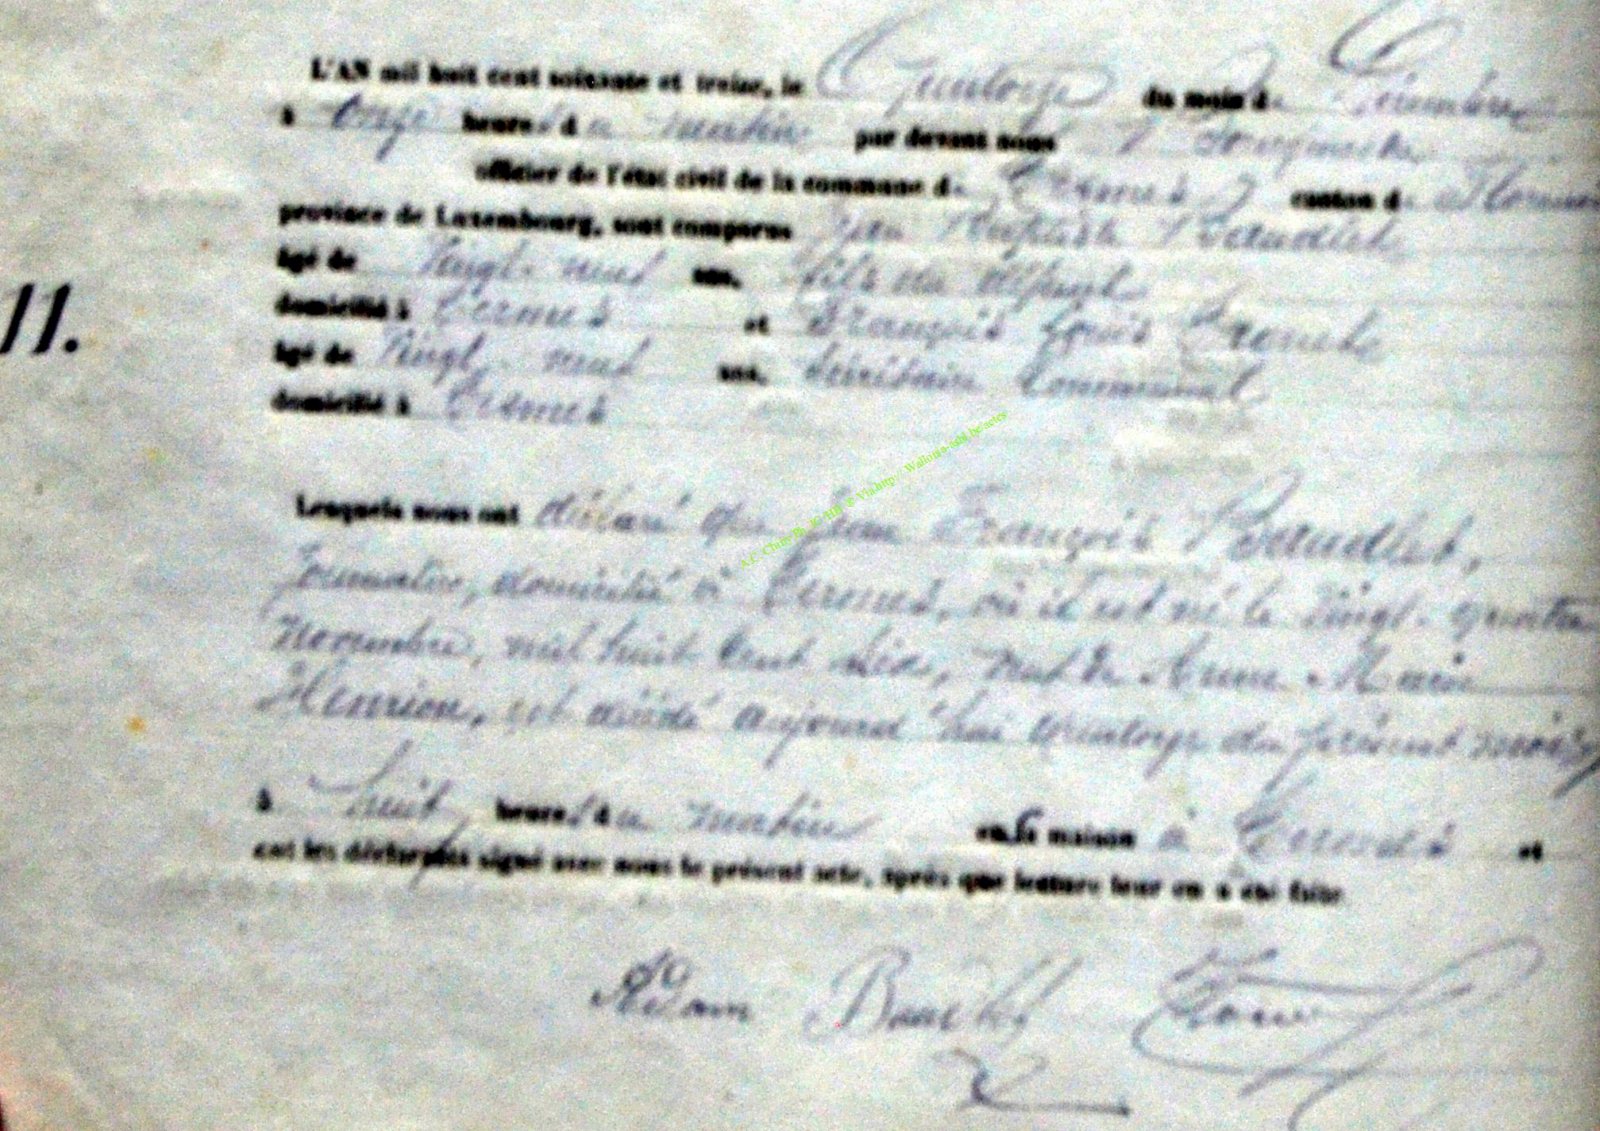 L'AN mil huit cent soixante et treize, le Quatorze du mois de Décembre
à Onze heures du matin par devant nous
officier de l'état civil de la commune de Termes, canton de Florenville
province de Luxembourg, sont comparus Jean Baptiste Baudlet
âgé de Vingt-neuf ans, fils du défunt
domicilié à Termes et François Louis
âgé de Vingt-neuf ans, Secrétaire Communal
domicilié à Termes
11.
Lesquels nous ont déclaré que Jean François Baudlet,
Journalier, domicilié à Termes, où il est né le Vingt-quatre
Novembre, mil huit Cent dix, veuf de Anne Marie
Henrion, est décédé aujourd'hui quatorze du présent mois,
à huit heures du matin en sa maison à Termes et
ont les déclarants signé avec nous le présent acte, après que lecture leur en a été faite
Adam